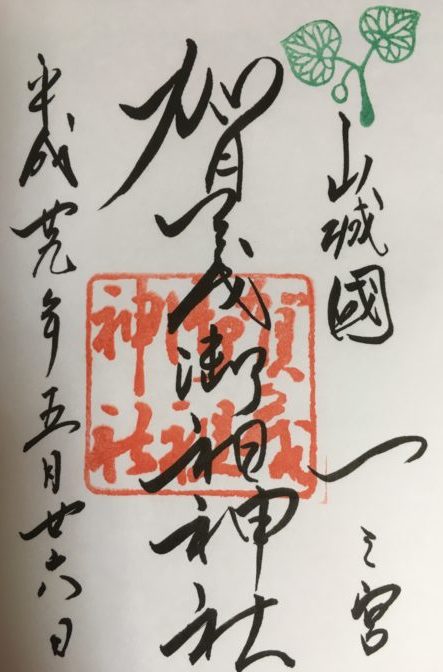 山城國一之宮
賀茂御祖神社
平成廿九年五月廿六日
賀茂
御祖
神社